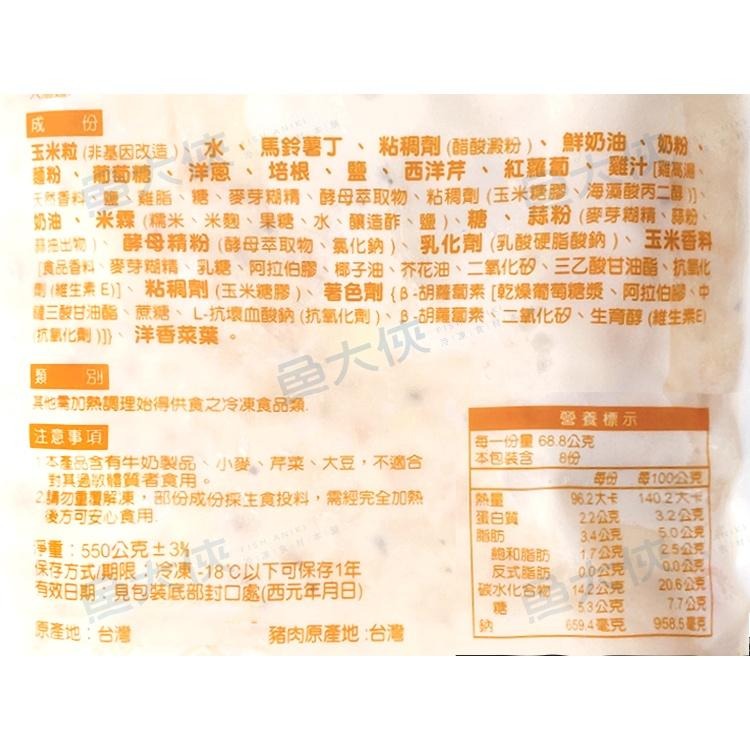 成 份
玉米粒(非基因改造)、水、馬鈴薯丁、粘稠劑(醋酸澱粉)、鮮奶油、奶粉、
麵粉、葡萄糖、洋蔥、培根、鹽、西洋芹、紅蘿蔔、雞汁[雞高湯、
天然香料、鹽、雞脂、糖、麥芽糊精、酵母萃取物、粘稠劑(玉米糖膠、海藻酸丙二醇)]、
奶油、米霖(糯米、米麴、果糖、水、釀造酢、鹽)、糖、蒜粉(麥芽糊精、蒜粉、
蒜油出物)、酵母精粉(酵母萃取物、氯化鈉)、乳化劑(乳酸硬脂酸鈉)、玉米香料
[食品香料、麥芽糊精、乳糖、阿拉伯膠、椰子油、芥花油、二氧化矽、三乙酸甘油酯、抗氧化
劑(維生素E)]、粘稠劑(玉米糖膠)、著色劑{β-胡蘿蔔素[乾燥葡萄糖漿、阿拉伯膠、中
鏈三酸甘油酯、蔗糖、L-抗壞血酸鈉(抗氧化劑)、β-胡蘿蔔素、二氧化矽、生育醇(維生素E)
(抗氧化劑)]}、洋香菜葉。
類 別
其他需加熱調理始得供食之冷凍食品類.
注意事項
1.本產品含有牛奶製品、小麥、芹菜、大豆，不適合
對其過敏體質者食用。
2.請勿重覆解凍，部份成份採生食投料，需經完全加熱
後方可安心食用.
淨重：550公克±3%
保存方式/期限：冷凍-18℃以下可保存1年
有效日期：見包裝底部封口處(西元年月日)
原產地：台灣 豬肉原產地：台灣
營養標示
每一份量 68.8公克
本包裝含 8份
每份 每100公克
熱量 96.2大卡 140.2大卡
蛋白質 2.2公克 3.2公克
脂肪 3.4公克 5.0公克
飽和脂肪 1.7公克 2.5公克
反式脂肪 0.0公克 0.0公克
碳水化合物 14.2公克 20.6公克
糖 5.3公克 7.7公克
鈉 659.4毫克 958.5毫克
魚大俠
FISH ANIKI
冷凍食材本舖